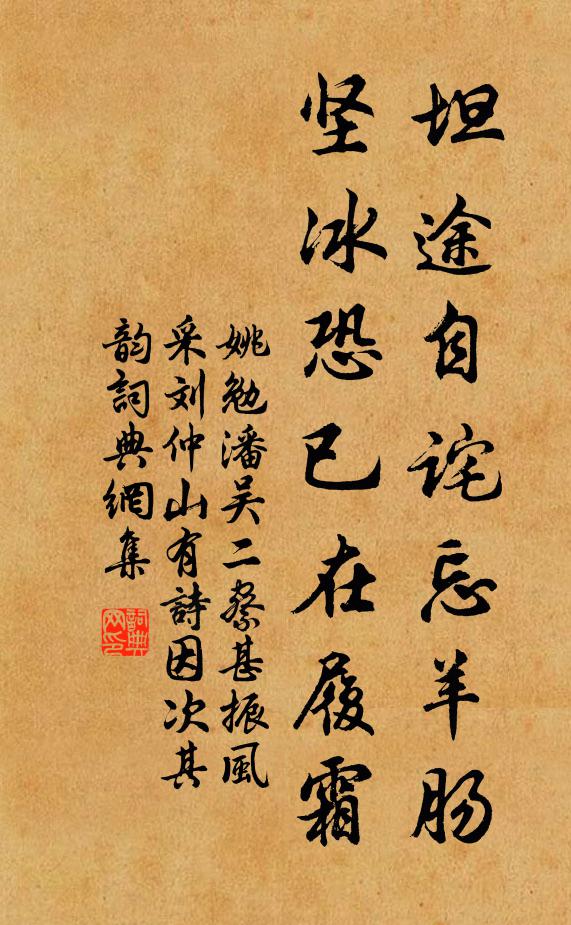 坦途自诧忘羊肠
坚冰恐已在履霜
姚勉潘吴二察甚振風
采刘仲山有詩因次其
韵詞典網集
詞典
网印